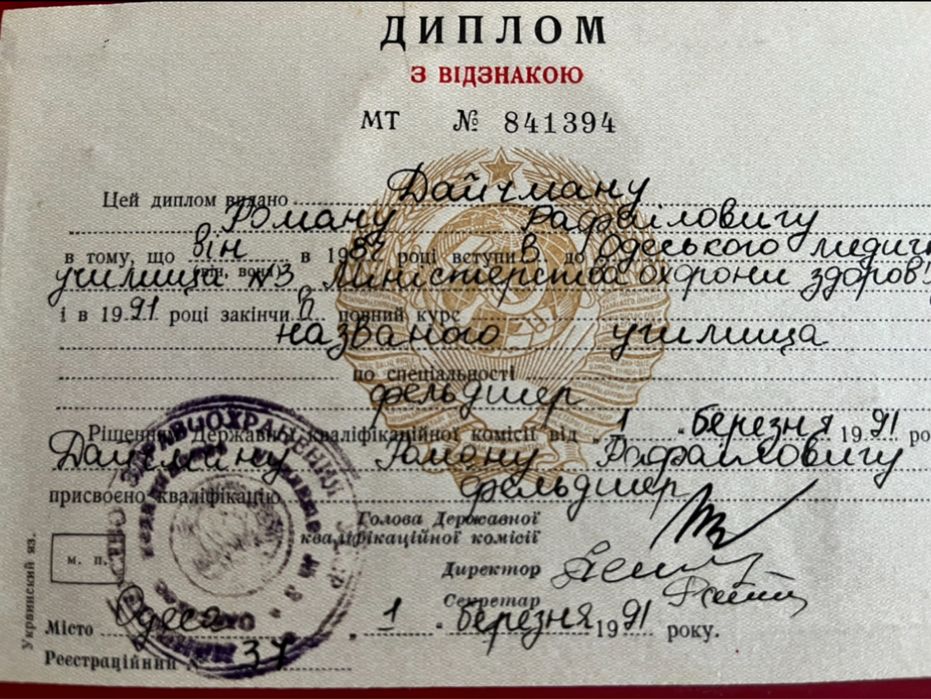 ДИПЛОМ
З ВІДЗНАКОЮ
МТ № 841394
Цей диплом видано Дайчману
Роману Рафаіловичу
в тому, що він в 1987 році вступив до Одеського медичн
(він, вона)
училища №3 Міністерства охорони здоров'
і в 1991 році закінчив повний курс
названого училища
по спеціальності
фельдшер
Рішенням Державної кваліфікаційної комісії від „ 1 " березня 1991 ро
Дайчману Роману Рафаіловичу
присвоєно кваліфікацію фельдшер
Голова Державної
кваліфікаційної комісії
Директор
Секретар
м. п.
Украинский яз.
Місто Одеса „ 1 " березня 1991 року.
Реєстраційний № 37